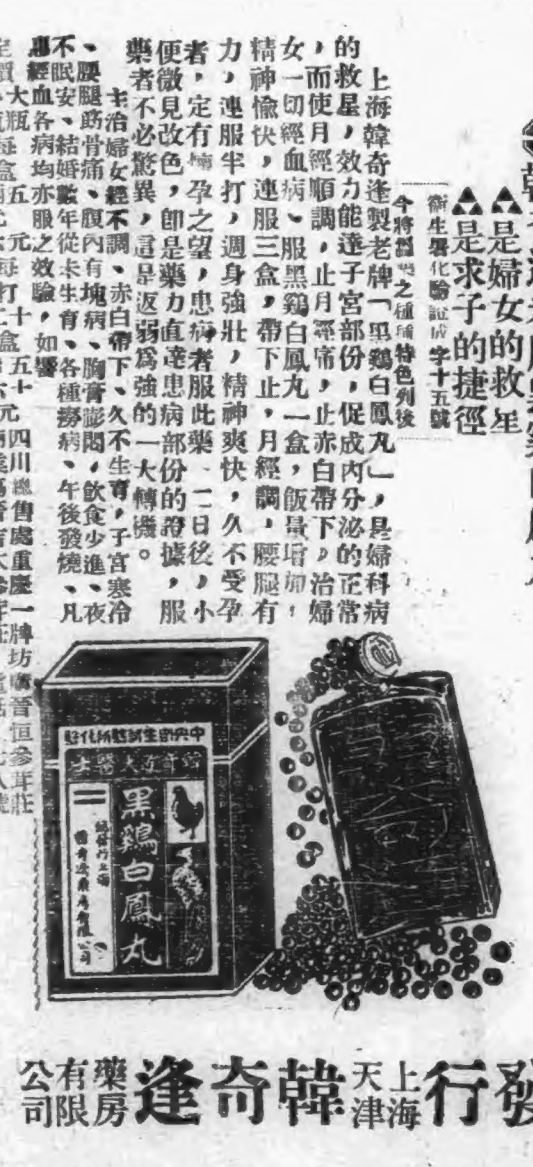 ▲是婦女的救星
▲是求子的捷徑
衛生署化驗證成字十五號
今將之種種特色列後
上海韓奇逢製老牌「黑鷄白鳳丸」,是婦科病
的救星,效力能達子宮部份,促成內分泌的正常
,而使月經順調,止月經痛,止赤白帶下,治婦
女一切經血病、服黑鷄白鳳丸一盒,飯量增加!
精神愉快,連服三盒,帶下止,月經調,腰腿有
力,連服半打,週身強壯,精神爽快,久不受孕
者,定有懷孕之望,患病者服此藥、二日後,小
便微見改色,卽是藥力直達患病部份的證據,服
藥者不必驚異,這是返弱爲強的一大轉機。
主治婦女經不調、赤白帶下、久不生育,子宮寒冷
、腰腿筋骨痛、腹內有塊病、胸膏膨悶,飲食少進、夜
不眠安、結婚數年從未生育、各種癆病、午後發燒、凡
經血各病均亦服之效驗,如響
大瓶每盒五元 每打十盒五十元 四川總售處重慶一牌坊晉恒參茸莊
中央衛生試驗所化驗
韓奇逢大醫士
黑鷄白鳳丸
總發行上海
韓奇逢藥房有限公司
發行
上海
天津
韓奇逢
藥房
有限
公司